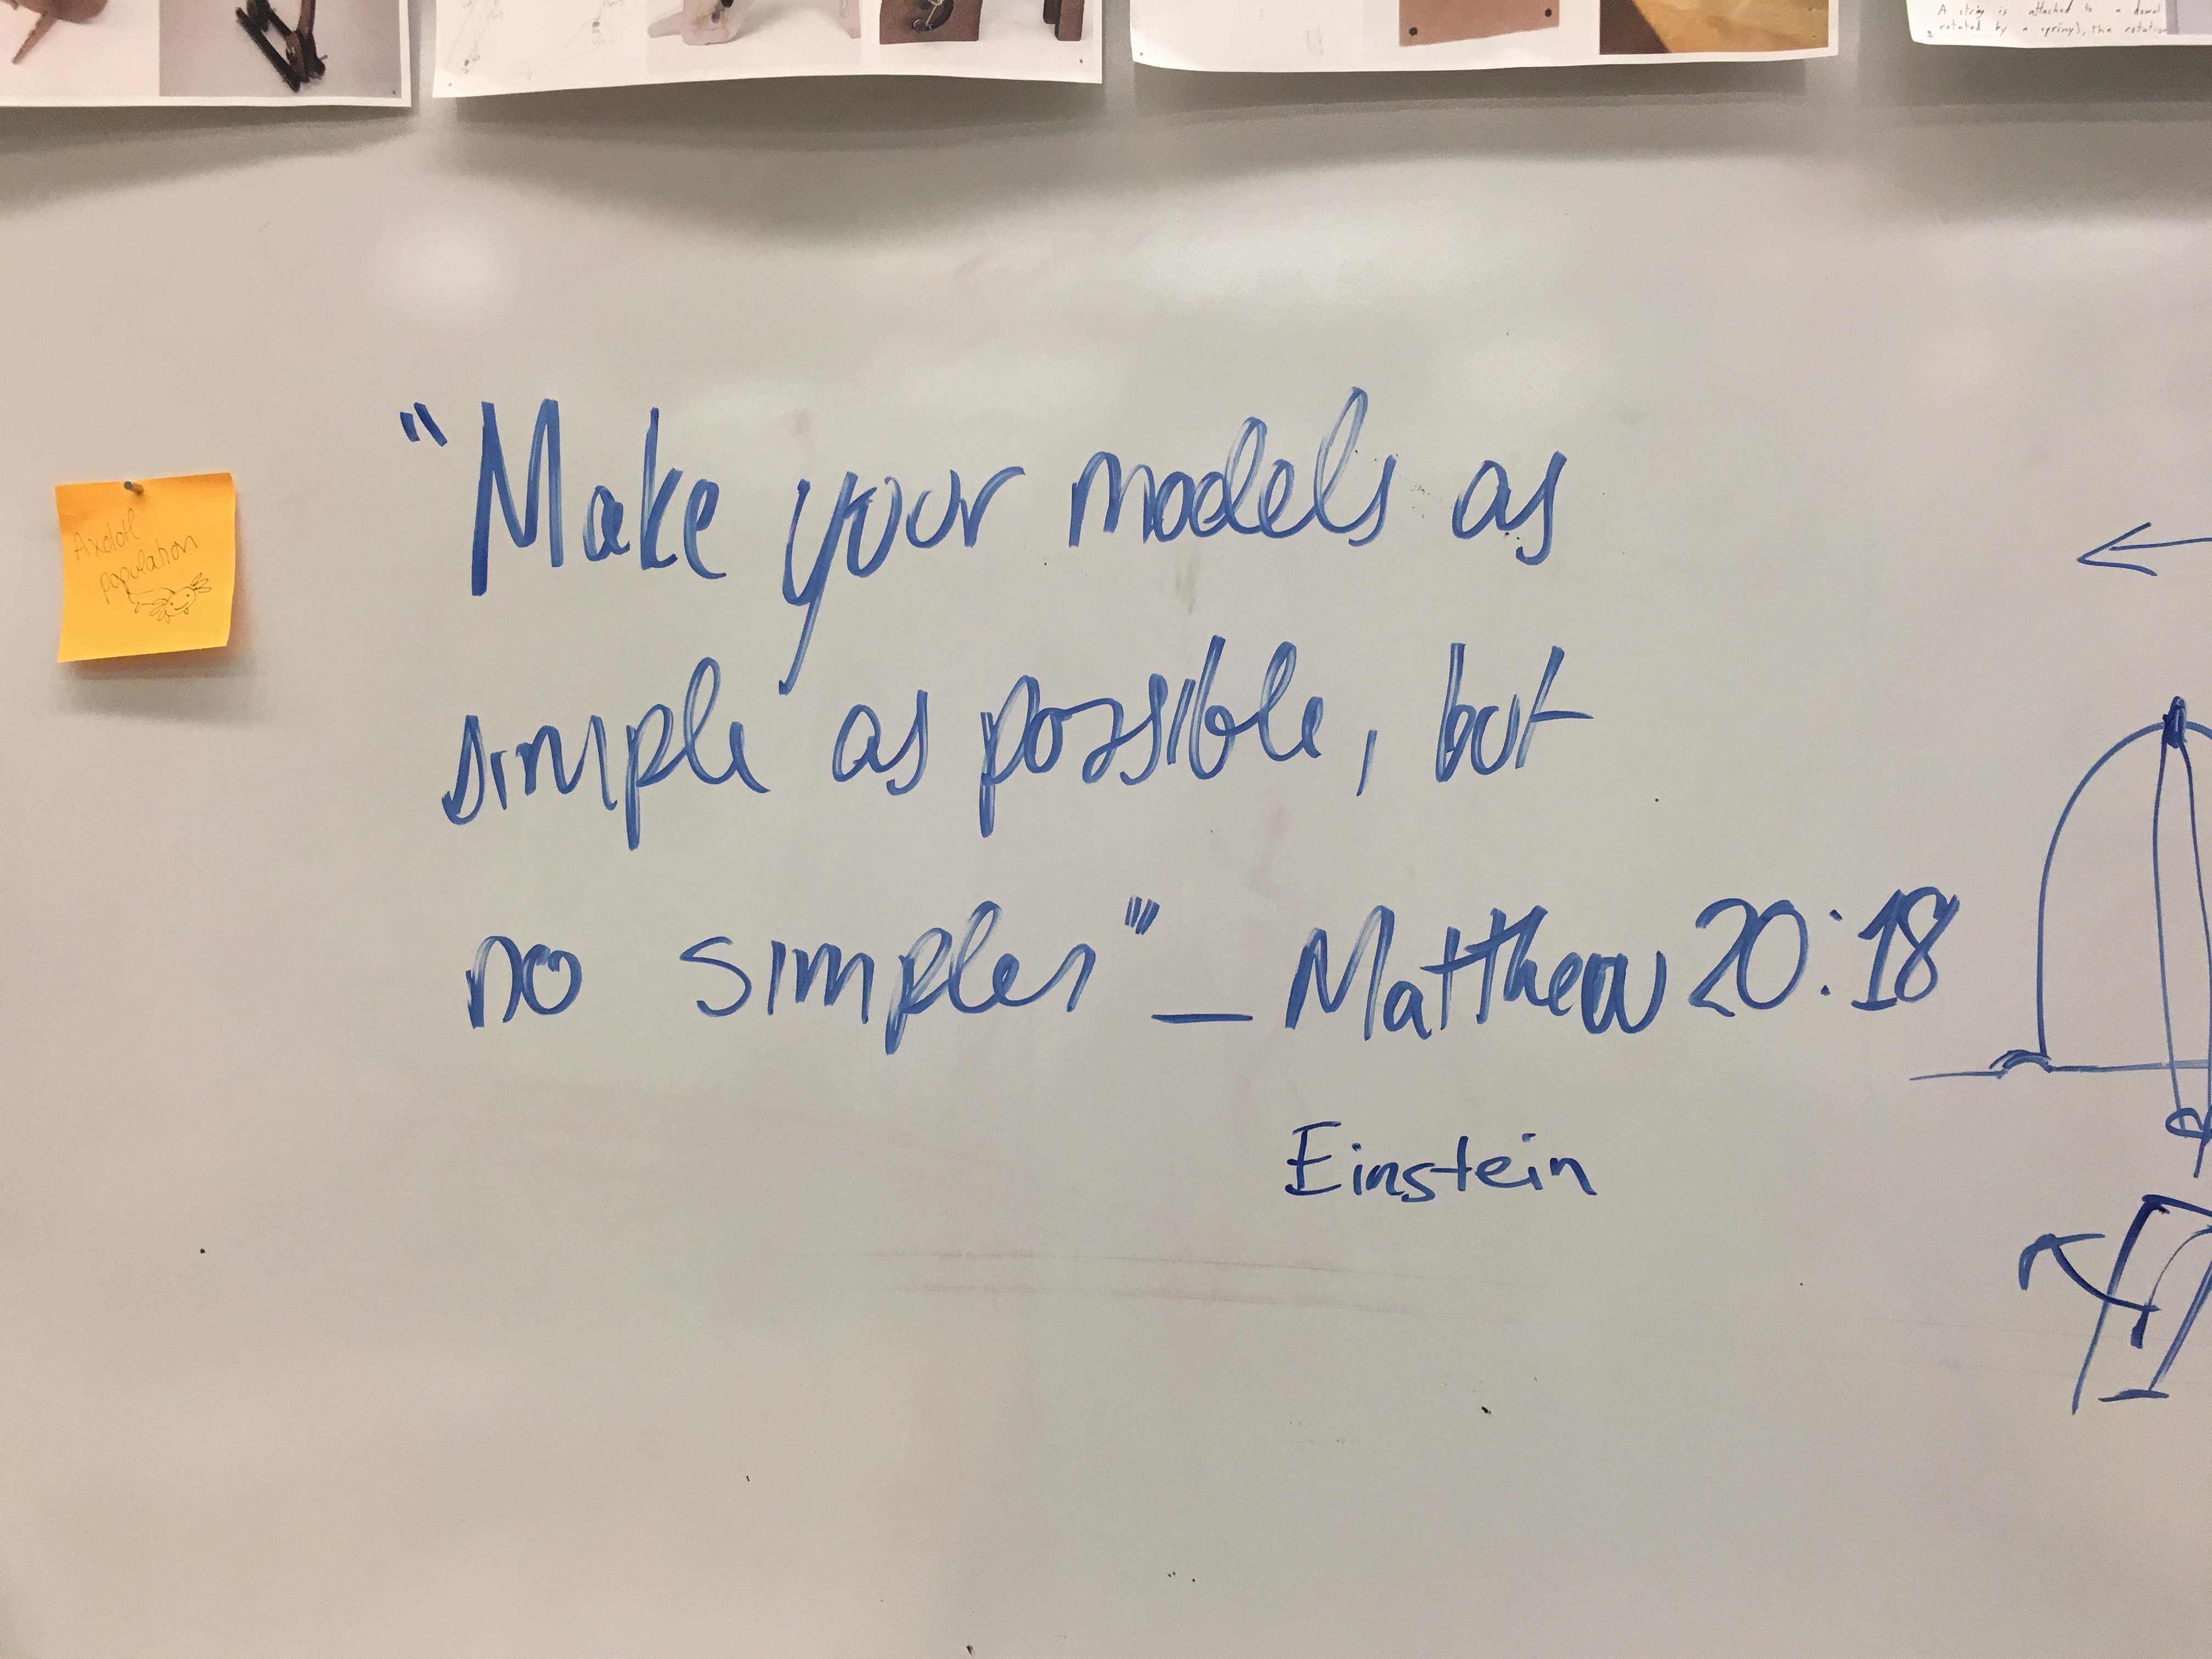 A string is attached to a dowel
rotated by a spring), the rotation
Axolotl
population
"Make your models as
simple as possible, but
no simpler" — Matthew 20:18
Einstein